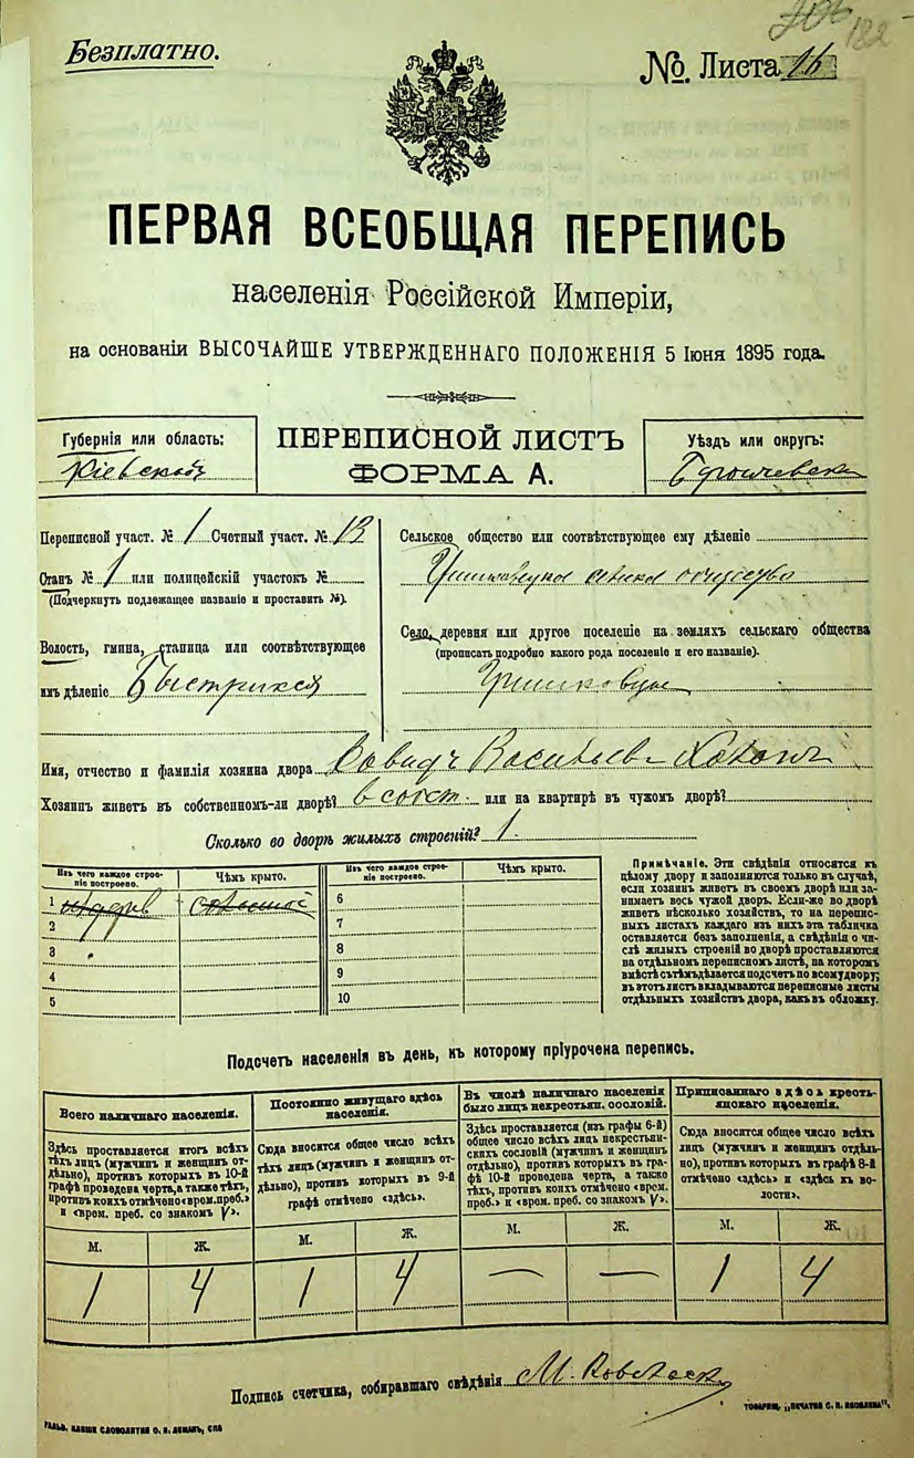 Безплатно.
182
№. Листа 16
ПЕРВАЯ ВСЕОБЩАЯ ПЕРЕПИСЬ
населенія Россійской Имперіи,
на основаніи ВЫСОЧАЙШЕ УТВЕРЖДЕННАГО ПОЛОЖЕНІЯ 5 Іюня 1895 года.
Губернія или область:
Кіевской
ПЕРЕПИСНОЙ ЛИСТЪ
ФОРМА А.
Уѣздъ или округъ:
Переписной участ. № 1 Счетный участ. № 13
Станъ № 1 или полицейскій участокъ №
(Подчеркнуть подлежащее названіе и проставить №).
Волость, гмина, станица или соотвѣтствующее
имъ дѣленіе Быстрикся
Сельское общество или соотвѣтствующее ему дѣленіе
Село, деревня или другое поселеніе на земляхъ сельскаго общества
(прописать подробно какого рода поселеніе и его названіе).
Имя, отчество и фамилія хозяина двора Давидъ Васильевъ
Хозяинъ живетъ въ собственномъ-ли дворѣ? в собст. или на квартирѣ въ чужомъ дворѣ?
Сколько во дворѣ жилыхъ строеній? 1.
Изъ чего каждое строе-
ніе построено.
Чѣмъ крыто.
1
2
3
4
5
Изъ чего каждое строе-
ніе построено.
Чѣмъ крыто.
6
7
8
9
10
Примѣчаніе. Эти свѣдѣнія относятся къ
цѣлому двору и заполняются только въ случаѣ,
если хозяинъ живетъ въ своемъ дворѣ или за-
нимаетъ весь чужой дворъ. Если-же во дворѣ
живетъ нѣсколько хозяйствъ, то на перепис-
ныхъ листахъ каждаго изъ нихъ эта табличка
оставляется безъ заполненія, а свѣдѣнія о чи-
слѣ жилыхъ строеній во дворѣ проставляются
на отдѣльномъ переписномъ листѣ, на которомъ
вмѣстѣ съ тѣмъ дѣлается подсчетъ по всему двору;
въ этотъ листъ вкладываются переписные листы
отдѣльныхъ хозяйствъ двора, какъ въ обложку.
Подсчетъ населенія въ день, къ которому пріурочена перепись.
Всего наличнаго населенія.
Здѣсь проставляется итогъ всѣхъ
тѣхъ лицъ (мужчинъ и женщинъ от-
дѣльно), противъ которыхъ въ 10-й
графѣ проведена черта, а также тѣхъ,
противъ коихъ отмѣчено «врем. преб.»
и «врем. преб. со знакомъ V».
М. Ж.
1 4
Постоянно живущаго здѣсь
населенія.
Сюда вносится общее число всѣхъ
тѣхъ лицъ (мужчинъ и женщинъ от-
дѣльно), противъ которыхъ въ 9-й
графѣ отмѣчено «здѣсь».
М. Ж.
1 4
Въ числѣ наличнаго населенія
было лицъ некрестьян. сословій.
Здѣсь проставляется (изъ графы 6-й)
общее число всѣхъ лицъ некрестьян-
скихъ сословій (мужчинъ и женщинъ
отдѣльно), противъ которыхъ въ гра-
фѣ 10-й проведена черта, а также
тѣхъ, противъ коихъ отмѣчено «врем.
преб.» и «врем. преб. со знакомъ V».
М. Ж.
— —
Приписаннаго здѣсь кресть-
янскаго населенія.
Сюда вносится общее число всѣхъ
лицъ (мужчинъ и женщинъ отдѣль-
но), противъ которыхъ въ графѣ 8-й
отмѣчено «здѣсь» и «здѣсь къ во-
лости».
М. Ж.
1 4
Подпись счетчика, собиравшаго свѣдѣнія М.
ГАЛЬВ. КЛИШЕ СЛОВОЛИТНИ О. И. ЛЕМАНЪ, СПБ
ТОВАРИЩ. „ПЕЧАТНЯ С. П. ЯКОВЛЕВА".